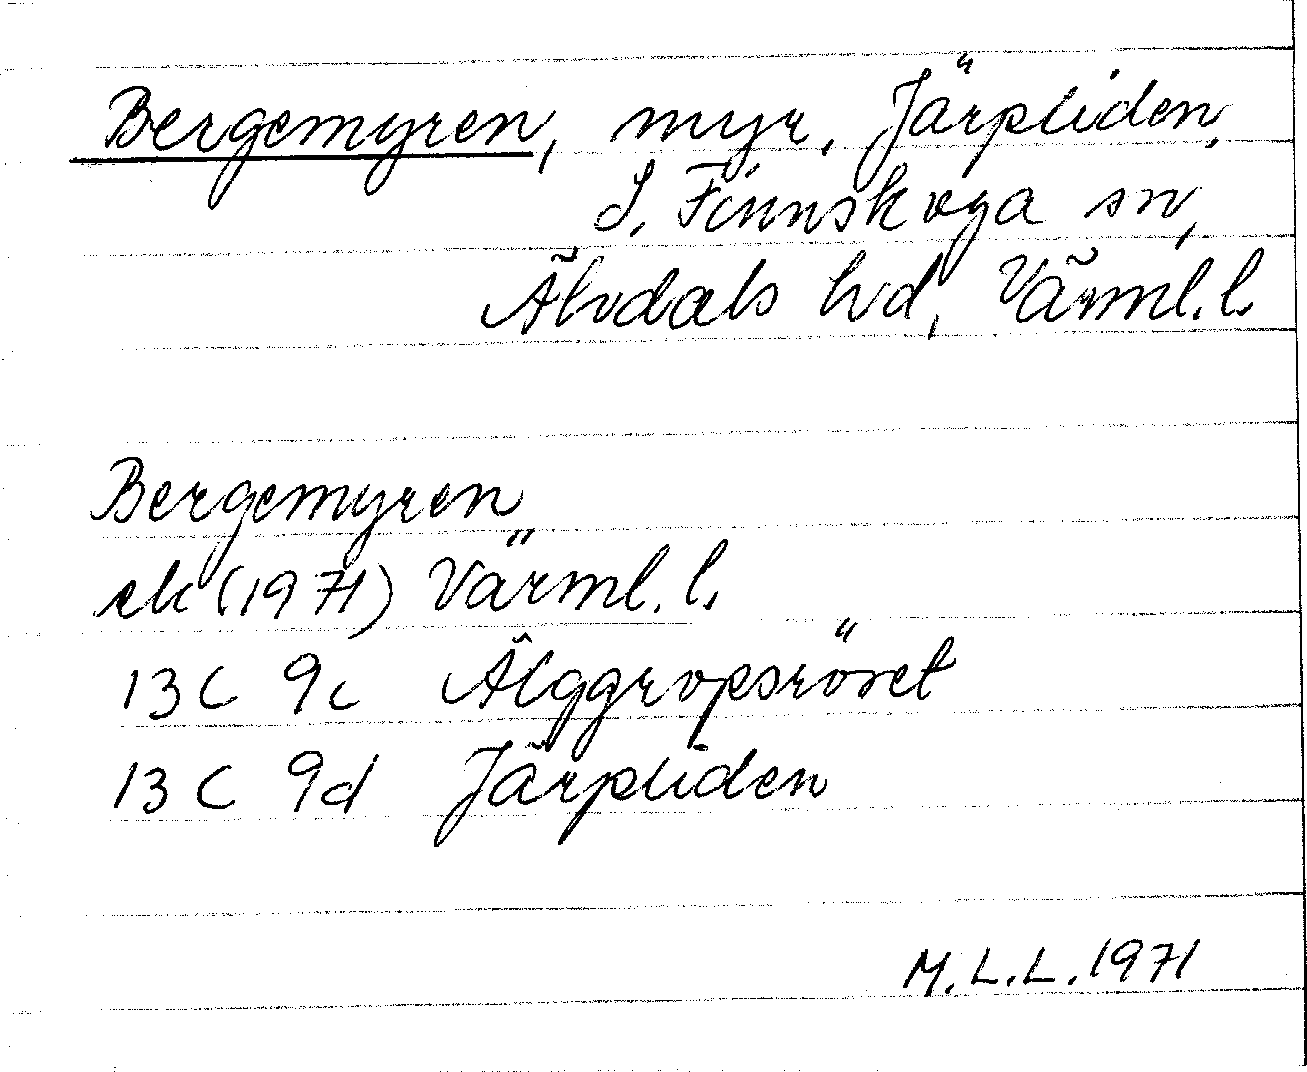 Bergemyren, myr, Järpliden,
S. Finnskoga sn,
Älvdals hd, Värml. l.
Bergemyren
ek (1971) Värml. l.
13C 9c Älggropsröset
13C 9d Järpliden
M.L.L. 1971